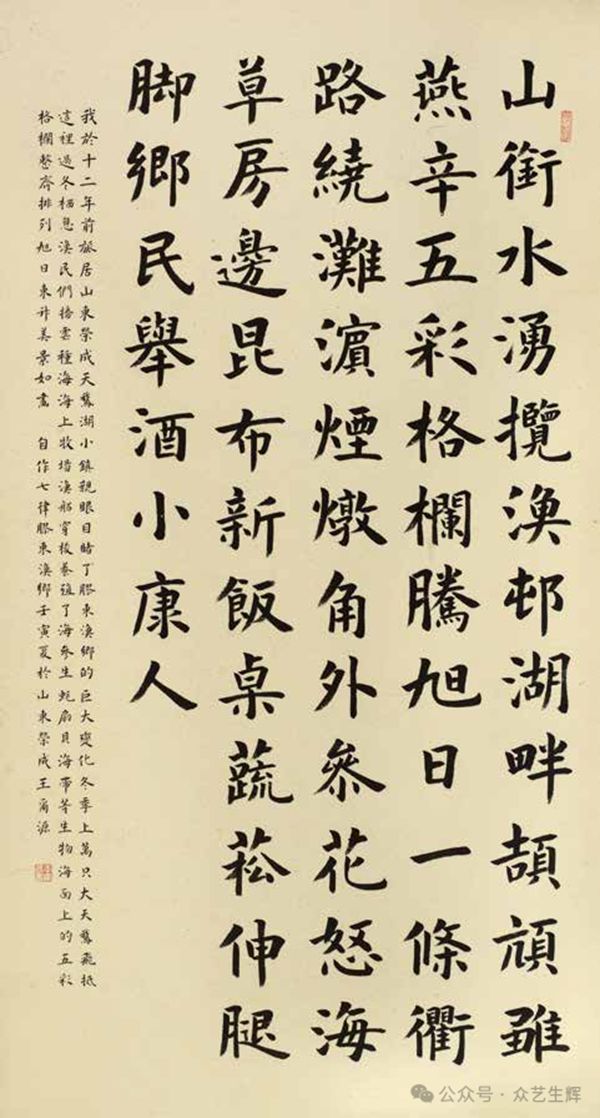 山銜水湧攬漁邨湖畔頡頏雖
燕辛五彩格欄騰旭日一條衢
路繞灘濵煙燉角外叅花怒海
草房邊昆布新飯桌蔬菘伸腿
脚鄉民舉酒小康人
我於十二年前旅居山東榮成天鵞湖小鎮親眼目睹了膠東漁鄉的巨大變化冬季上萬只大天鵞飛抵
這裡過冬栖息漁民們播雲種海海上牧場漁船穿梭養殖了海參生蚝扇貝海帶等生物海面上的五彩
格欄整齊排列旭日東升美景如畫 自作七律膠東漁鄉壬寅夏於山東榮成王源
公众号·众艺生辉